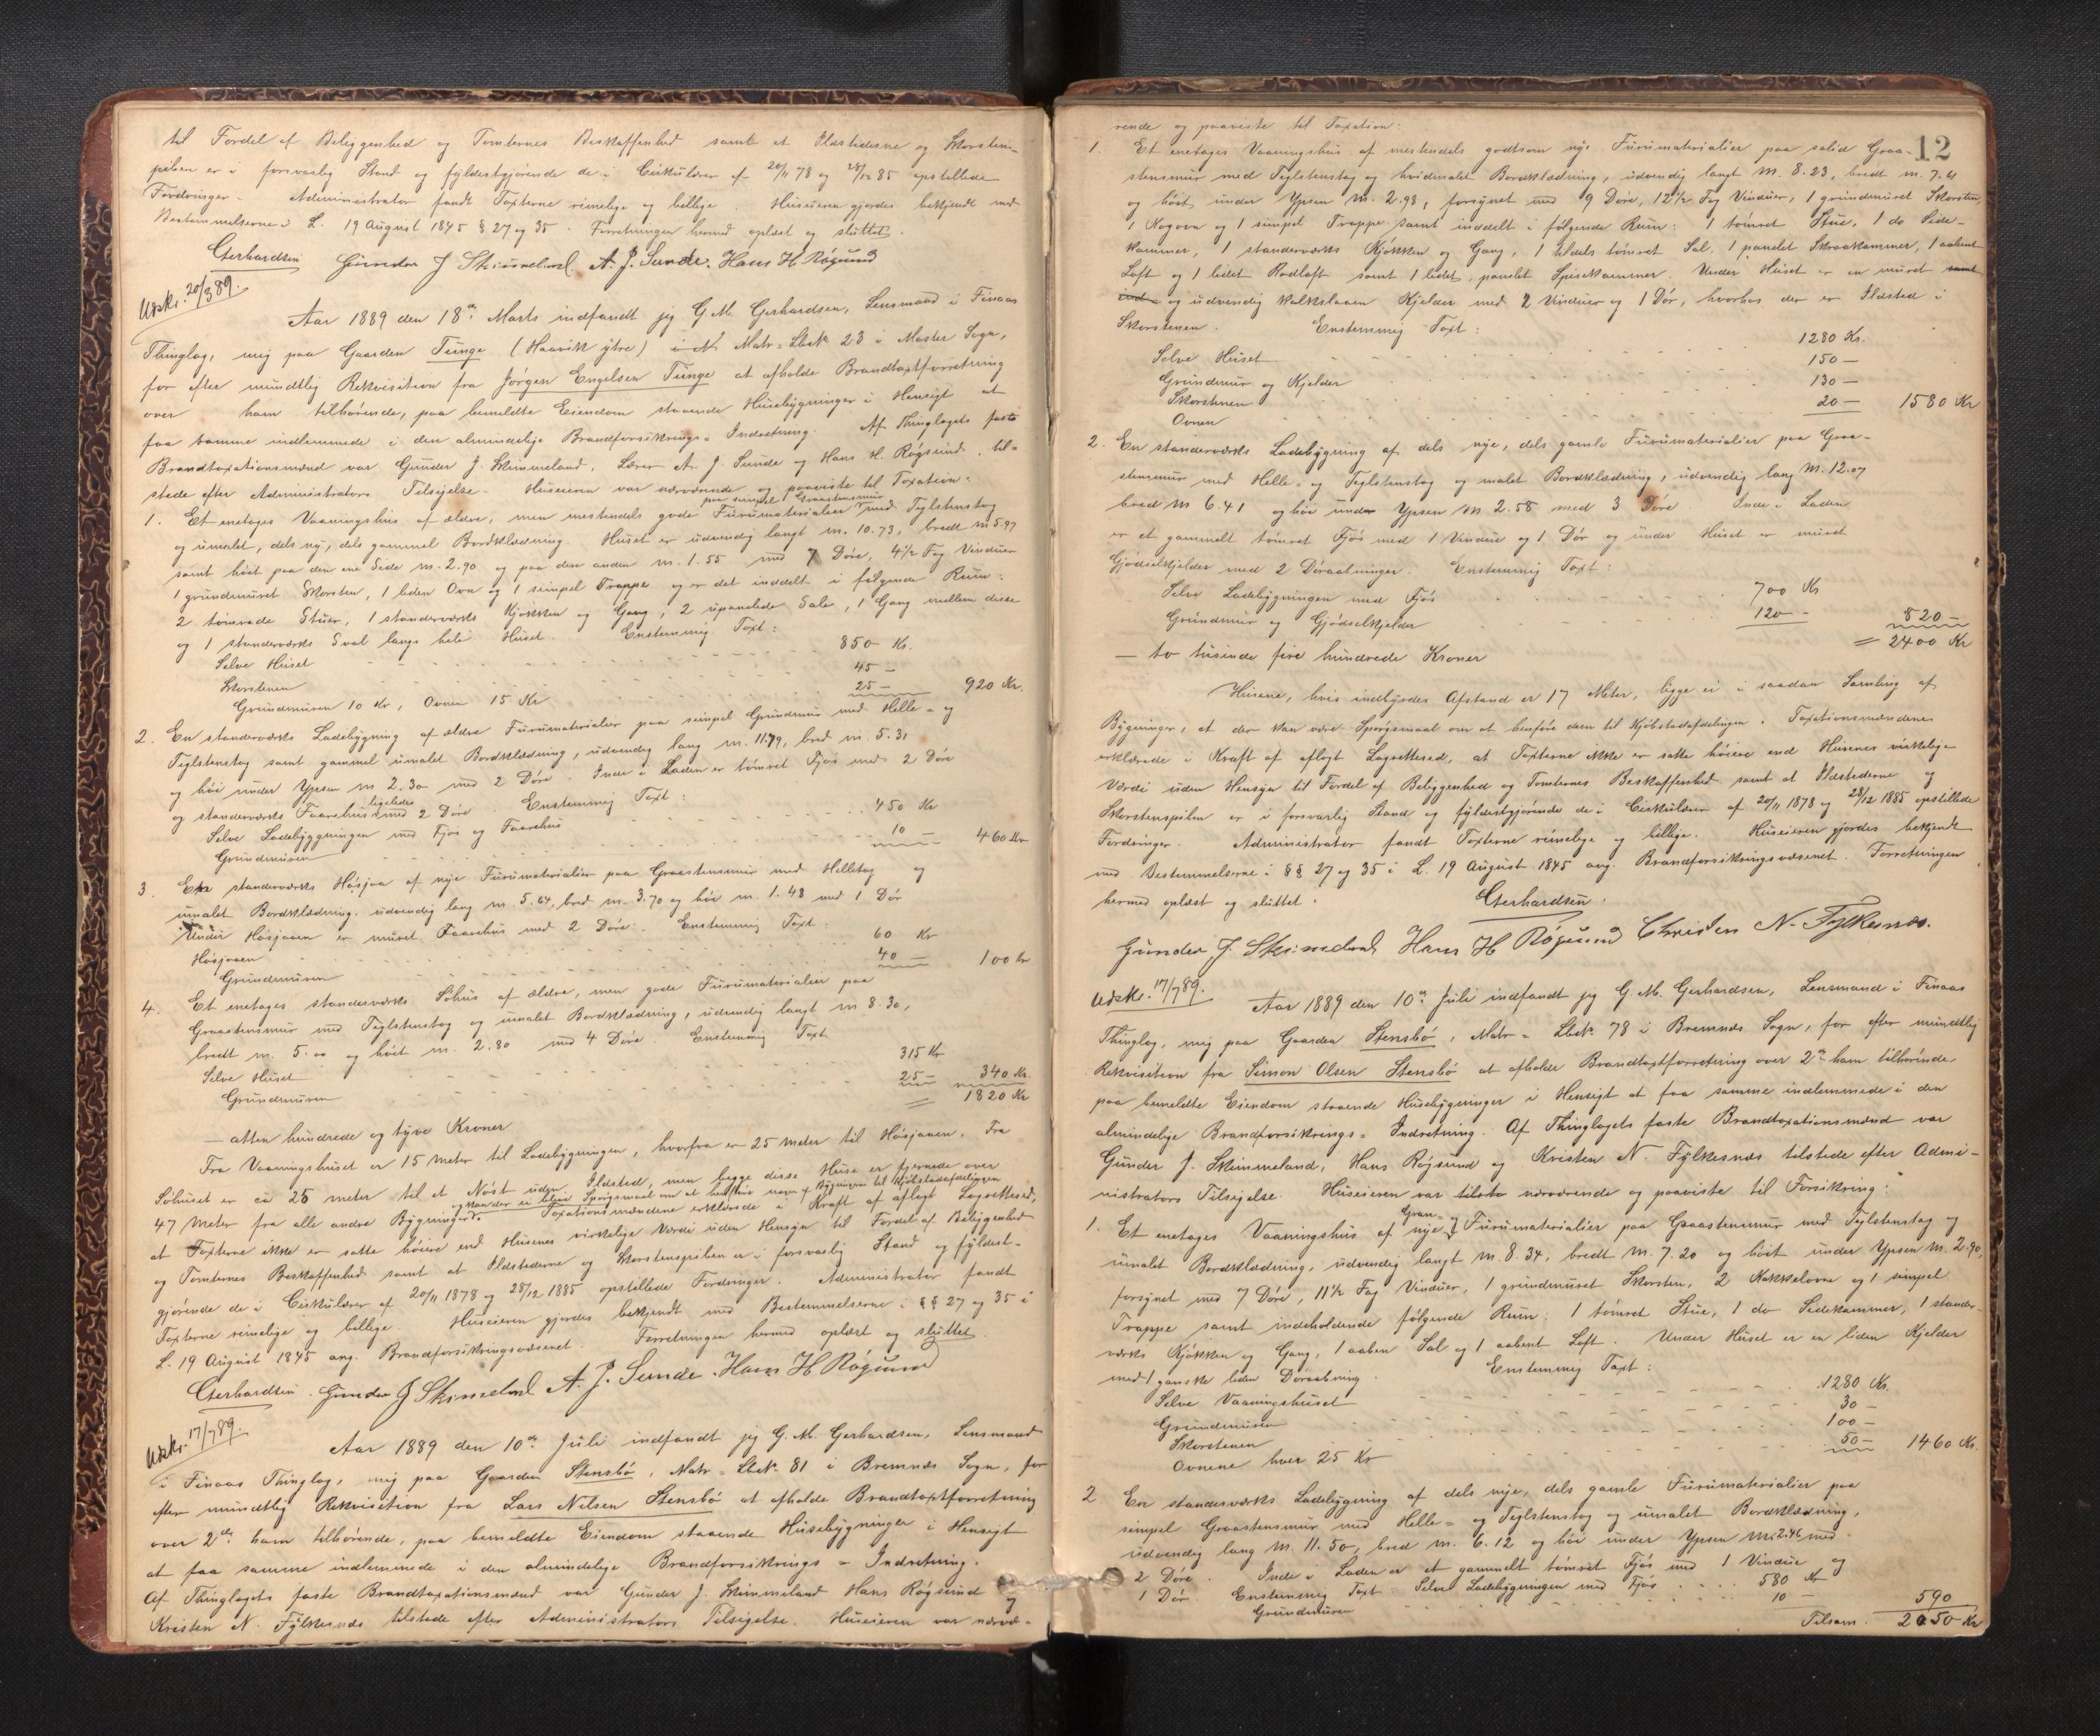 til Fordel af Beliggenhed og Tomternes Beskaffenhed samt at Ildstederne og Skorstens-
piben er i forsvarlig Stand og fyldestgjørende de i Cirkulærer af 20/11 78 og 28/12 85 opstillede
Fordringer. Administrator fandt Taxterne rimelige og billige. Huseieren gjordes bekjendt med
Bestemmelserne i L. 19 August 1845 § 27 og 35. Forretningen hermed oplæst og sluttet.
Gerhardsen Gunder J Skimmeland A. J. Sunde. Hans H Røgsund
Udskr. 20/3 89.
Aar 1889 den 18de Marts indfandt jeg G. M. Gerhardsen, Lensmand i Finaas
Thinglag, mig paa Gaarden Tunge (Haavik ytre) Matr-Lbnr 23 i Moster Sogn,
for efter mundtlig Rekvisition fra Jørgen Engelsen Tunge at afholde Brandtaxtforretning
over ham tilhørende, paa bemeldte Eiendom staaende Husebygninger i Hensigt at
faa samme indlemmede i den almindelige Brandforsikrings-Indretning. Af Thinglagets faste
Brandtaxationsmænd var Gunder J. Skimmeland, Lærer A. J. Sunde og Hans H. Røgsund, til-
stede efter Administrators Tilsigelse. Huseieren var nærværende og paaviste til Taxation:
1. Et enetages Vaaningshus af ældre, men mestendels gode Furumaterialier paa simpel Graastensmur med Teglstenstag
og umalet, dels ny, dels gammel Bordklædning. Huset er udvendig langt m. 10.73, bredt m 5.97
samt høit paa den ene Side m. 2.90 og paa den anden m. 1.55 med 7 Døre, 4½ Fag Vinduer
1 grundmuret Skorsten, 1 liden Ovn og 1 simpel Trappe og er det inddelt i følgende Rum:
2 tømrede Stuer, 1 standerværks Kjøkken og Gang, 2 upanelede Sale, 1 Gang mellem disse
og 1 standerværks Sval langs hele Huset. Enstemmig Taxt:
Selve Huset 850 Kr.
Skorstenen 45 —
Grundmuren 10 Kr, Ovnen 15 Kr 25 — 920 Kr.
2. En standerværks Ladebygning af ældre Furumaterialier paa simpel Grundmur med Helle- og
Teglstenstag samt gammel umalet Bordklædning, udvendig lang m. 11.79, bred m. 5.31
og høi under Ypsen m 2.30 med 2 Døre. Inde i Laden er tømret Fjøs med 2 Døre
og standerværks Faarehus ligeledes med 2 Døre. Enstemmig Taxt:
Selve Ladebyggningen med Fjøs og Faarehus 450 Kr
Grundmuren 10 — 460 Kr
3. En standerværks Høsjaa af nye Furumaterialier paa Graastensmur med Helletag og
umalet Bordklædning. udvendig lang m. 5.64, bred m. 3.70 og høi m. 1.48 med 1 Dør
Under Høsjaaen er muret Faarehus med 2 Døre. Enstemmig Taxt:
Høsjaaen 60 Kr
Grundmuren 40 — 100 Kr
4. Et enetages standerværks Søhus af ældre, men gode Furumaterialier paa
Graastensmur med Teglstenstag og umalet Bordklædning, udvendig langt m 8.30,
bredt m. 5.00 og høit m. 2.80 med 4 Døre. Enstemmig Taxt
Selve Huset 315 Kr
Grundmuren 25 — 340 Kr.
= 1820 Kr
— atten hundrede og tyve Kroner
Fra Vaaningshuset er 15 Meter til Ladebygningen, hvorfra er 25 meter til Høsjaaen. Fra
Søhuset er ca 25 meter til et Nøst uden Ildsted, men begge disse Huse er fjernede over
47 Meter fra alle andre Bygninger og kan der ei blive Spørgsmaal om at henføre nogen af Bygningerne til Kjøbstadafdelingen. Taxationsmændene erklærede i Kraft af aflagt Lagrettesed,
at Taxterne ikke er satte høiere end Husenes virkelige Værdi uden Hensyn til Fordel af Beliggenhed
og Tomternes Beskaffenhed samt at Ildstederne og Skorstenspiben er i forsvarlig Stand og fyldest-
gjørende de i Cirkulærer af 20/11 1878 og 28/12 1885 opstillede Fordringer. Administrator fandt
Taxterne rimelige og billige. Huseieren gjordes bekjendt med Bestemmelserne i §§ 27 og 35 i
L. 19 August 1845 ang. Brandforsikringsvæsenet. Forretningen hermed oplæst og sluttet.
Gerhardsen. Gunder J Skimeland A. J. Sunde. Hans H Røgsund
Udskr. 17/7 89.
Aar 1889 den 10de Juli indfandt jeg G. M. Gerhardsen, Lensmand
i Finaas Thinglag, mig paa Gaarden Stensbø, Matr-Lbnr 81 i Bremnæs Sogn, for
efter mundtlig Rekvisition fra Lars Nilsen Stensbø at afholde Brandtaxtforretning
over 2de ham tilhørende, paa bemeldte Eiendom staaende Husebygninger i Hensigt
at faa samme indlemmede i den almindelige Brandforsikrings-Indretning.
Af Thinglagets faste Brandtaxationsmænd var Gunder J. Skimmeland Hans Røgsund og
Kristen N. Fylkesnæs tilstede efter Administrators Tilsigelse. Huseieren var nærvæ-
12
rende og paaviste til Taxation:
1. Et enetages Vaaningshus af mestendels godtsom nye Furumaterialier paa solid Graa-
stensmur med Teglstenstag og hvidmalet Bordklædning, udvendig langt m. 8.23, bredt m. 7.41
og høit under Ypsen m. 2.98, forsynet med 9 Døre, 12½ Fag Vinduer, 1 grundmuret Skorsten,
1 Kogovn og 1 simpel Trappe samt inddelt i følgende Rum: 1 tømret Stue, 1 do Side-
kammer, 1 standerværks Kjøkken og Gang, 1 tildels tømret Sal, 1 panelet Skraakammer, 1 aabent
Loft og 1 lidet Rodloft samt 1 lidet panelet Spisekammer. Under Huset er en muret samt
ind- og udvendig kalkslaaen Kjelder med 2 Vinduer og 1 Dør, hvorhos der er Ildsted i
Skorstenen. Enstemmig Taxt:
Selve Huset 1280 Kr.
Grundmur og Kjelder 150 —
Skorstenen 130 —
Ovnen 20 — 1580 Kr
2. En standerværks Ladebygning af dels nye, dels gamle Furumaterialier paa Graa-
stensmur med Helle- og Teglstenstag og malet Bordklædning, udvendig lang m. 12.07
bred m 6.41 og høi under Ypsen m 2.58 med 3 Døre Inde i Laden
er et gammelt tømret Fjøs med 1 Vindue og 1 Dør og under Huset er muret
Gjødselkjelder med 2 Døraabninger. Enstemmig Taxt:
Selve Ladebygningen med Fjøs 700 Kr
Grundmur og Gjødselkjelder 120 — 820 —
= 2400 Kr
— to tusinde fire hundrede Kroner
Husene, hvis indbyrdes Afstand er 17 Meter, ligge ei i saadan Samling af
Bygninger, at der kan være Spørgsmaal om at henføre dem til Kjøbstadafdelingen. Taxationsmændene
erklærede i Kraft af aflagt Lagrettesed, at Taxterne ikke er satte høiere end Husenes virkelige
Værdi uden Hensyn til Fordel af Beliggenhed og Tomternes Beskaffenhed samt at Ildstederne og
Skorstenspiben er i forsvarlig Stand og fyldestgjørende de i Cirkulærer af 20/11 1878 og 28/12 1885 opstillede
Fordringer. Administrator fandt Taxterne rimelige og billige. Huseieren gjordes bekjendt
med Bestemmelserne i §§ 27 og 35 i L. 19 August 1845 ang. Brandforsikringsvæsenet. Forretningen
hermed oplæst og sluttet. Gerhardsen.
Gunder J. Skimeland Hans H Røgsund Christen N. Fylkesnæs.
Udskr. 17/7 89.
Aar 1889 den 10de Juli indfandt jeg G. M. Gerhardsen, Lensmand i Finaas
Thinglag, mig paa Gaarden Stensbø, Matr-Lbnr 78 i Bremnæs Sogn, for efter mundtlig
Rekvisition fra Simon Olsen Stensbø at afholde Brandtaxtforretning over 2de ham tilhørende
paa bemeldte Eiendom staaende Husebygninger i Hensigt at faa samme indlemmede i den
almindelige Brandforsikrings-Indretning. Af Thinglagets faste Brandtaxationsmænd var
Gunder J. Skimmeland, Hans Røgsund og Kristen N. Fylkesnæs tilstede efter Admi-
nistrators Tilsigelse. Huseieren var tilsta nærværende og paaviste til Forsikring:
1. Et enetages Vaaningshus af nye Gran- og Furumaterialier paa Graastensmur med Teglstenstag og
umalet Bordklædning, udvendig langt m. 8.34, bredt m. 7.20 og høit under Ypsen m. 2.90,
forsynet med 7 Døre, 11½ Fag Vinduer, 1 grundmuret Skorsten, 2 Kakkelovne og 1 simpel
Trappe samt indeholdende følgende Rum: 1 tømret Stue, 1 do Sidekammer, 1 stander-
værks Kjøkken og Gang, 1 aaben Sal og 1 aabent Loft. Under Huset er en liden Kjelder
med 1 ganske liden Døraabning. Enstemmig Taxt:
Selve Vaaningshuset 1280 Kr.
Grundmuren 30 —
Skorstenen 100 —
Ovnene hver 25 Kr 50 — 1460 Kr.
2 En standerværks Ladebygning af dels nye, dels gamle Furumaterialier paa
simpel Graastensmur med Helle- og Teglstenstag og umalet Bordklædning,
udvendig lang m. 11.50, bred m. 6.12 og høi under Ypsen m. 2.46 med
2 Døre. Inde i Laden er et gammelt tømret Fjøs med 1 Vindue og
1 Dør Enstemmig Taxt: Selve Ladebygningen med Fjøs 580 Kr
Grundmuren 10 590
Tilsam. 2050 Kr